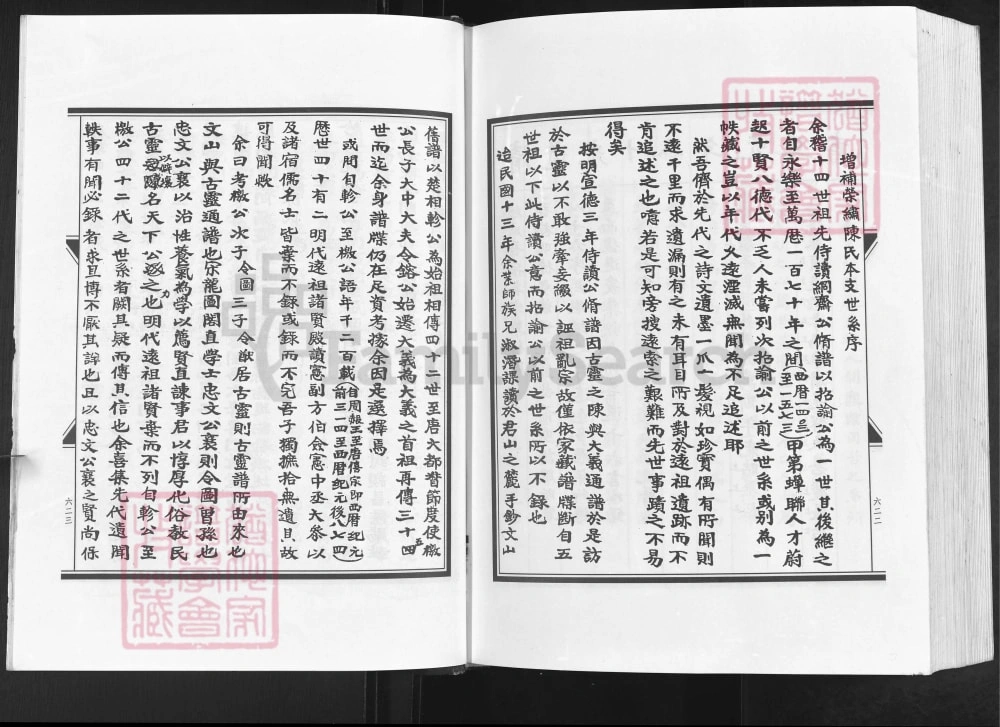 增補榮繡陳氏本支世系序
余稽十四世祖先侍讀綱齋公脩譜以拾諭公為一世其後繼之
者自永樂至萬曆一百七十年之間(西曆一四〇三至一五七三)甲第蟬聯人才蔚
起十賢八德代不乏人未嘗列次拾諭公以前之世系或別為一
帙藏之豈以年代久遠湮滅無聞為不足追述耶
然吾儕於先代之詩文遺墨一爪一髮視如珍寶偶有所聞則
不遠千里而求遺漏則有之未有耳目所及對於遠祖遺跡而不
肯追述之也噫若是可知旁搜遠索之艱難而先世事蹟之不易
得矣
按明宣德三年侍讀公脩譜因古靈之陳與大義通譜於是訪
於古靈以不敢強牽妄綴以誣祖亂宗故僅依家藏譜牒斷自五
世祖以下此侍讀公意而拾諭公以前之世系所以不錄也
迨民國十三年余業師族兄淑潛課讀於君山之麓手鈔文山
舊譜以楚相軫公為始祖相傳四十二世至唐大都督節度使檄
公長子大中大夫令鎔公始遷大義為大義之首祖再傳三十四
世而迄余身譜牒仍在足資考據余因是選擇焉
或問自軫公至檄公語年千二百載(自周赧王至唐僖宗即西曆紀元前三一四至西曆紀元後八七四)
歷世四十有二明代遠祖諸賢殿讀憲副方伯僉憲中丞大參以
及諸宿儒名士皆棄而不錄或錄而不完吾子獨撫拾無遺且故
可得聞歟
余曰考檄公次子令圖三子令猷居古靈則古靈譜所由來也
文山與古靈通譜也龍圖閣直學士忠文公襄則令圖曾孫也
忠文公襄以治性養氣為學以薦賢直諫事君以惇厚化俗教民
古靈名天下公之力也明代遠祖諸賢棄而不列自軫公至
檄公四十二代之世系者闕其疑而傳其信也余喜集先代遺聞
軼事有聞必錄者求且博不厭其詳也且以忠文公襄之賢尚係
六二二
六二三
FamilySearch